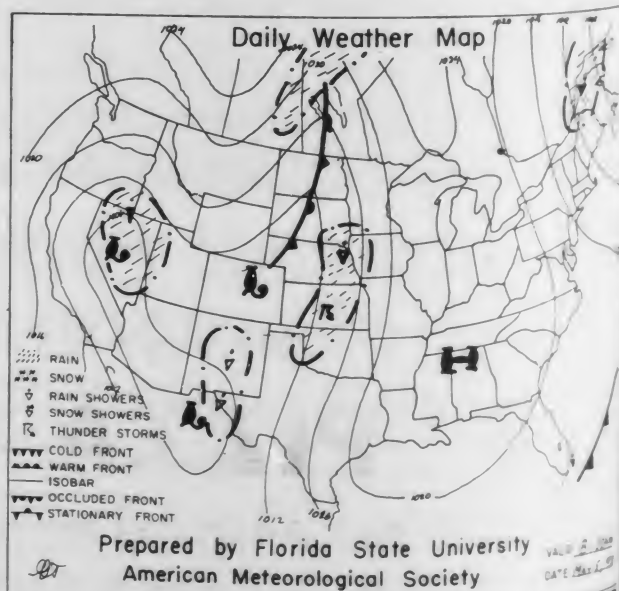 1024
1020
1024
1020
Daily Weather Map
1020
1016
L
L
L
H
RAIN
SNOW
RAIN SHOWERS
SNOW SHOWERS
THUNDER STORMS
COLD FRONT
WARM FRONT
ISOBAR
OCCLUDED FRONT
STATIONARY FRONT
1012
1020
Prepared by Florida State University
American Meteorological Society
VALID
DATE